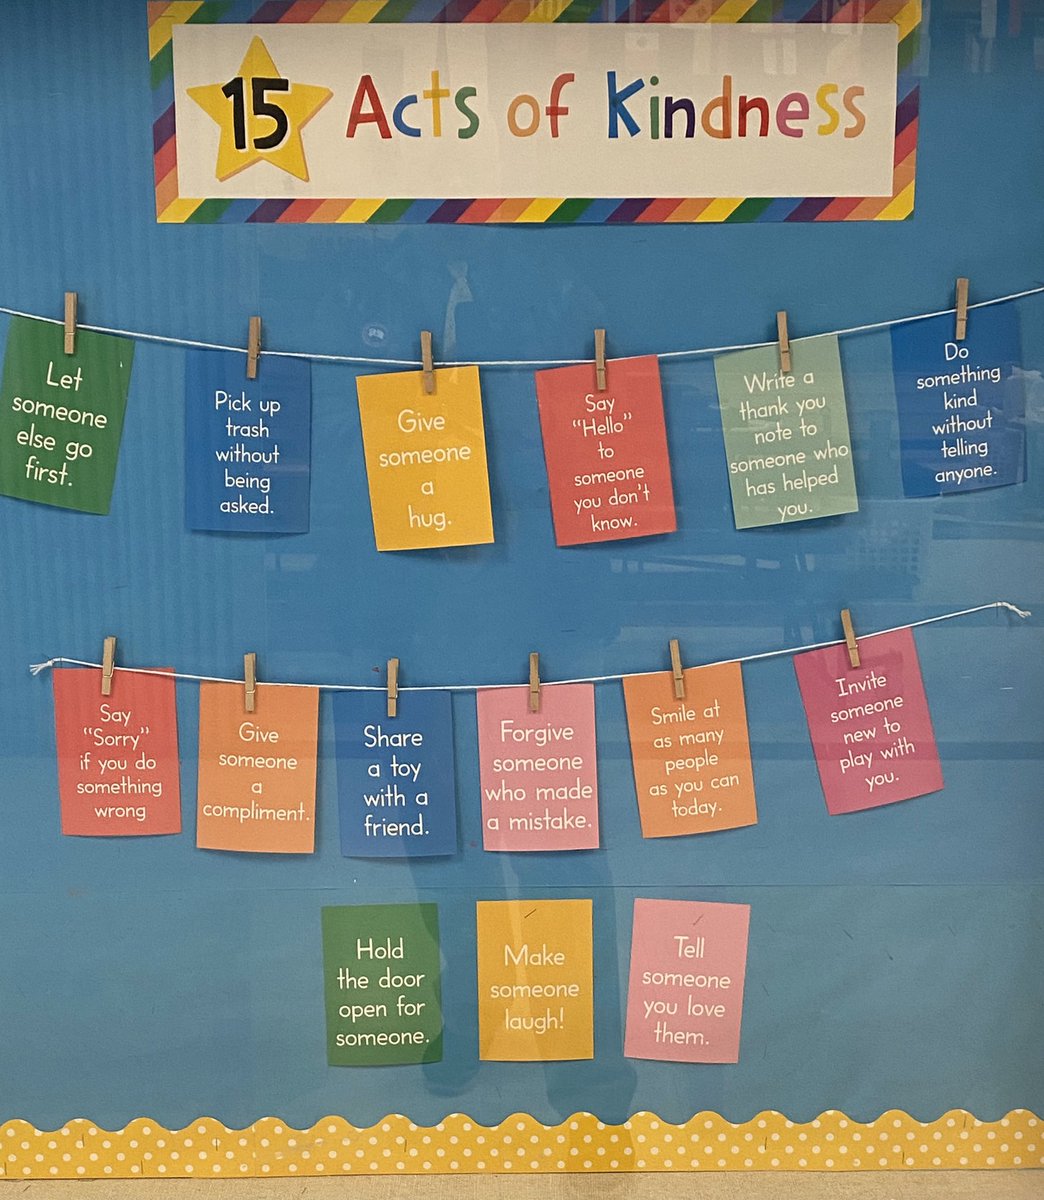 15 Acts of Kindness
Let
someone
else go
first.
Pick up
trash
without
being
asked.
Give
someone
a
hug.
Say
"Hello"
to
someone
you don't
know.
Write a
thank you
note to
someone who
has helped
you.
Do
something
kind
without
telling
anyone.
Say
"Sorry"
if you do
something
wrong
Give
someone
a
compliment.
Share
a toy
with a
friend.
Forgive
someone
who made
a mistake.
Smile at
as many
people
as you can
today.
Invite
someone
new to
play with
you.
Hold
the door
open for
someone.
Make
someone
laugh!
Tell
someone
you love
them.